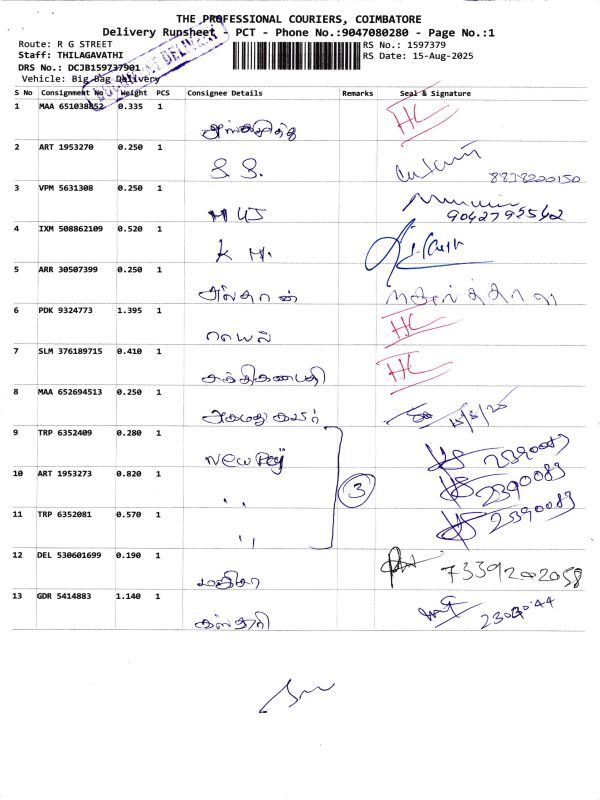 THE PROFESSIONAL COURIERS, COIMBATORE
Delivery Runsheet - PCT - Phone No.:9047080280 - Page No.:1
Route: R G STREET
RS No.: 1597379
Staff: THILAGAVATHI
RS Date: 15-Aug-2025
DRS No.: DCJB159737901
Vehicle: Big Bag Delivery
S No Consignment No Weight PCS Consignee Details Remarks Seal & Signature
1 MAA 651038852 0.335 1 HC
2 ART 1953270 0.250 1 S. S. 8838200150
3 VPM 5631308 0.250 1 9042795562
4 IXM 508862109 0.520 1 K M.
5 ARR 30507399 0.250 1 அஸ்தான்
6 PDK 9324773 1.395 1 HC
7 SLM 376189715 0.410 1 சக்திகணபதி HC
8 MAA 652694513 0.250 1 15/8/25
9 TRP 6352409 0.280 1 New 2390083
10 ART 1953273 0.820 1 " 3 2390083
11 TRP 6352081 0.570 1 " 2390083
12 DEL 530601699 0.190 1 7339202058
13 GDR 5414883 1.140 1 கஸ்தூரி